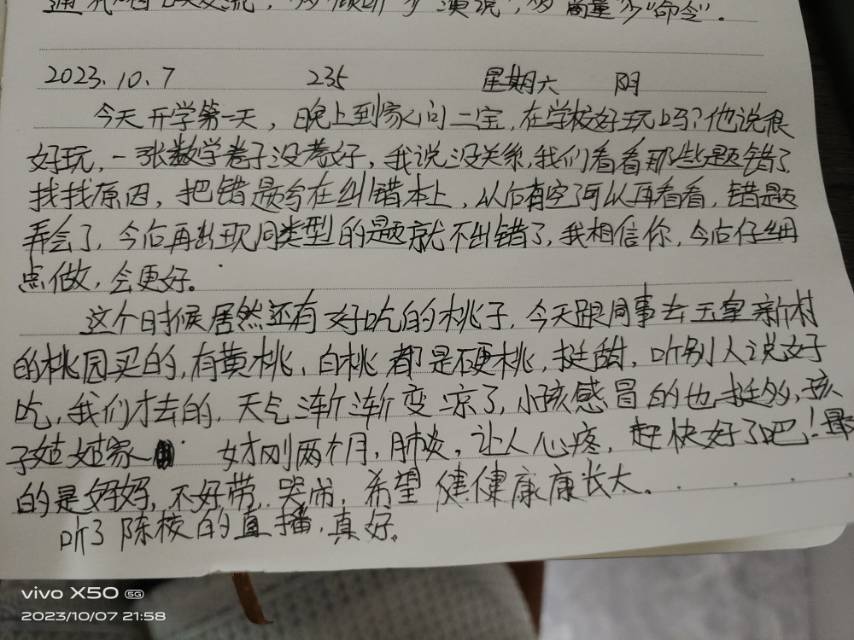 通沉 交流，多倾听少"演说"，多商量少"命令"。
2023.10.7 235 星期六 阴
今天开学第一天，晚上到家问二宝，在学校好玩吗？他说很
好玩，一张数学卷子没考好，我说没关系，我们看看那些题错了
找找原因，把错题写在纠错本上，以后有空了可以再看看，错题
弄会了，今后再出现同类型的题就不出错了，我相信你，今后仔细
点做，会更好。
这个时候居然还有好吃的桃子，今天跟同事去玉皇新村
的桃园买的，有黄桃，白桃都是硬桃，挺甜，听别人说好
吃，我们才去的，天气渐渐变凉了，小孩感冒的也挺多，孩
子姑姑家 才刚两个月，肺炎，让人心疼，赶快好了吧！最
的是妈妈，不好带，哭闹，希望健健康康长大。
听了陈校的直播，真好。
vivo X50 5G
2023/10/07 21:58